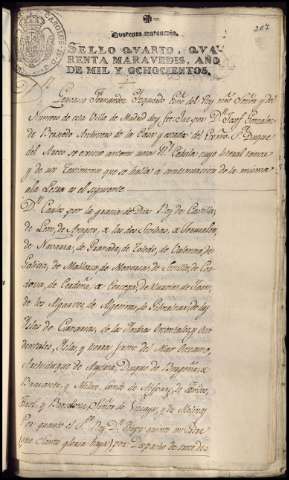 207
SELLO QVARTO, QVA-
RENTA MARAVEDIS, AÑO
DE MIL Y OCHOCIENTOS.
del Rey nro. Señor y del
Numero de esta Villa de Madrid doy fee: Que por Dn. Josef Gonzalez
de la Casa y estado del Exmo. Sr. Duque
y de un Testimonio que se halla a continuacion de la misma
a la Letra es el siguiente
Dn. Carlos por la gracia de Dios Rey de Castilla,
de Leon, de Aragon, de las dos Sicilias, de Jerusalen,
de Navarra, de Granada, de Toledo, de Valencia, de
Galicia, de Mallorca, de Menorca, de Sevilla, de Cer
deña, de Cordova, de Corcega, de Murcia, de Jaen,
de los Algarves, de Algecira, de Gibraltar, de las
Islas de Canarias, de las Indias Orientales, y Occi
dentales, Islas, y tierra firme del Mar Oceano,
Archiduque de Austria, Duque de Borgoña, de
Bravante, y Milan, Conde de Abspurg, de Flandes,
Tirol, y Barcelona, Señor de Vizcaya, y de Molina &a.
Por quanto el Sr. Rey Dn. Felipe quinto mi Padre
(que Santa gloria haya) por Despacho de trece de